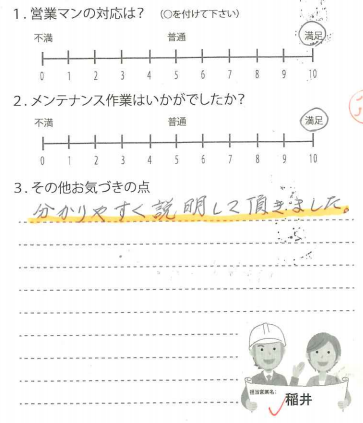 1.営業マンの対応は? (○を付けて下さい)
不満 普通 満足
0 1 2 3 4 5 6 7 8 9 10
2.メンテナンス作業はいかがでしたか?
不満 普通 満足
0 1 2 3 4 5 6 7 8 9 10
3.その他お気づきの点
分かりやすく説明して頂きました。
担当営業名:
稲井